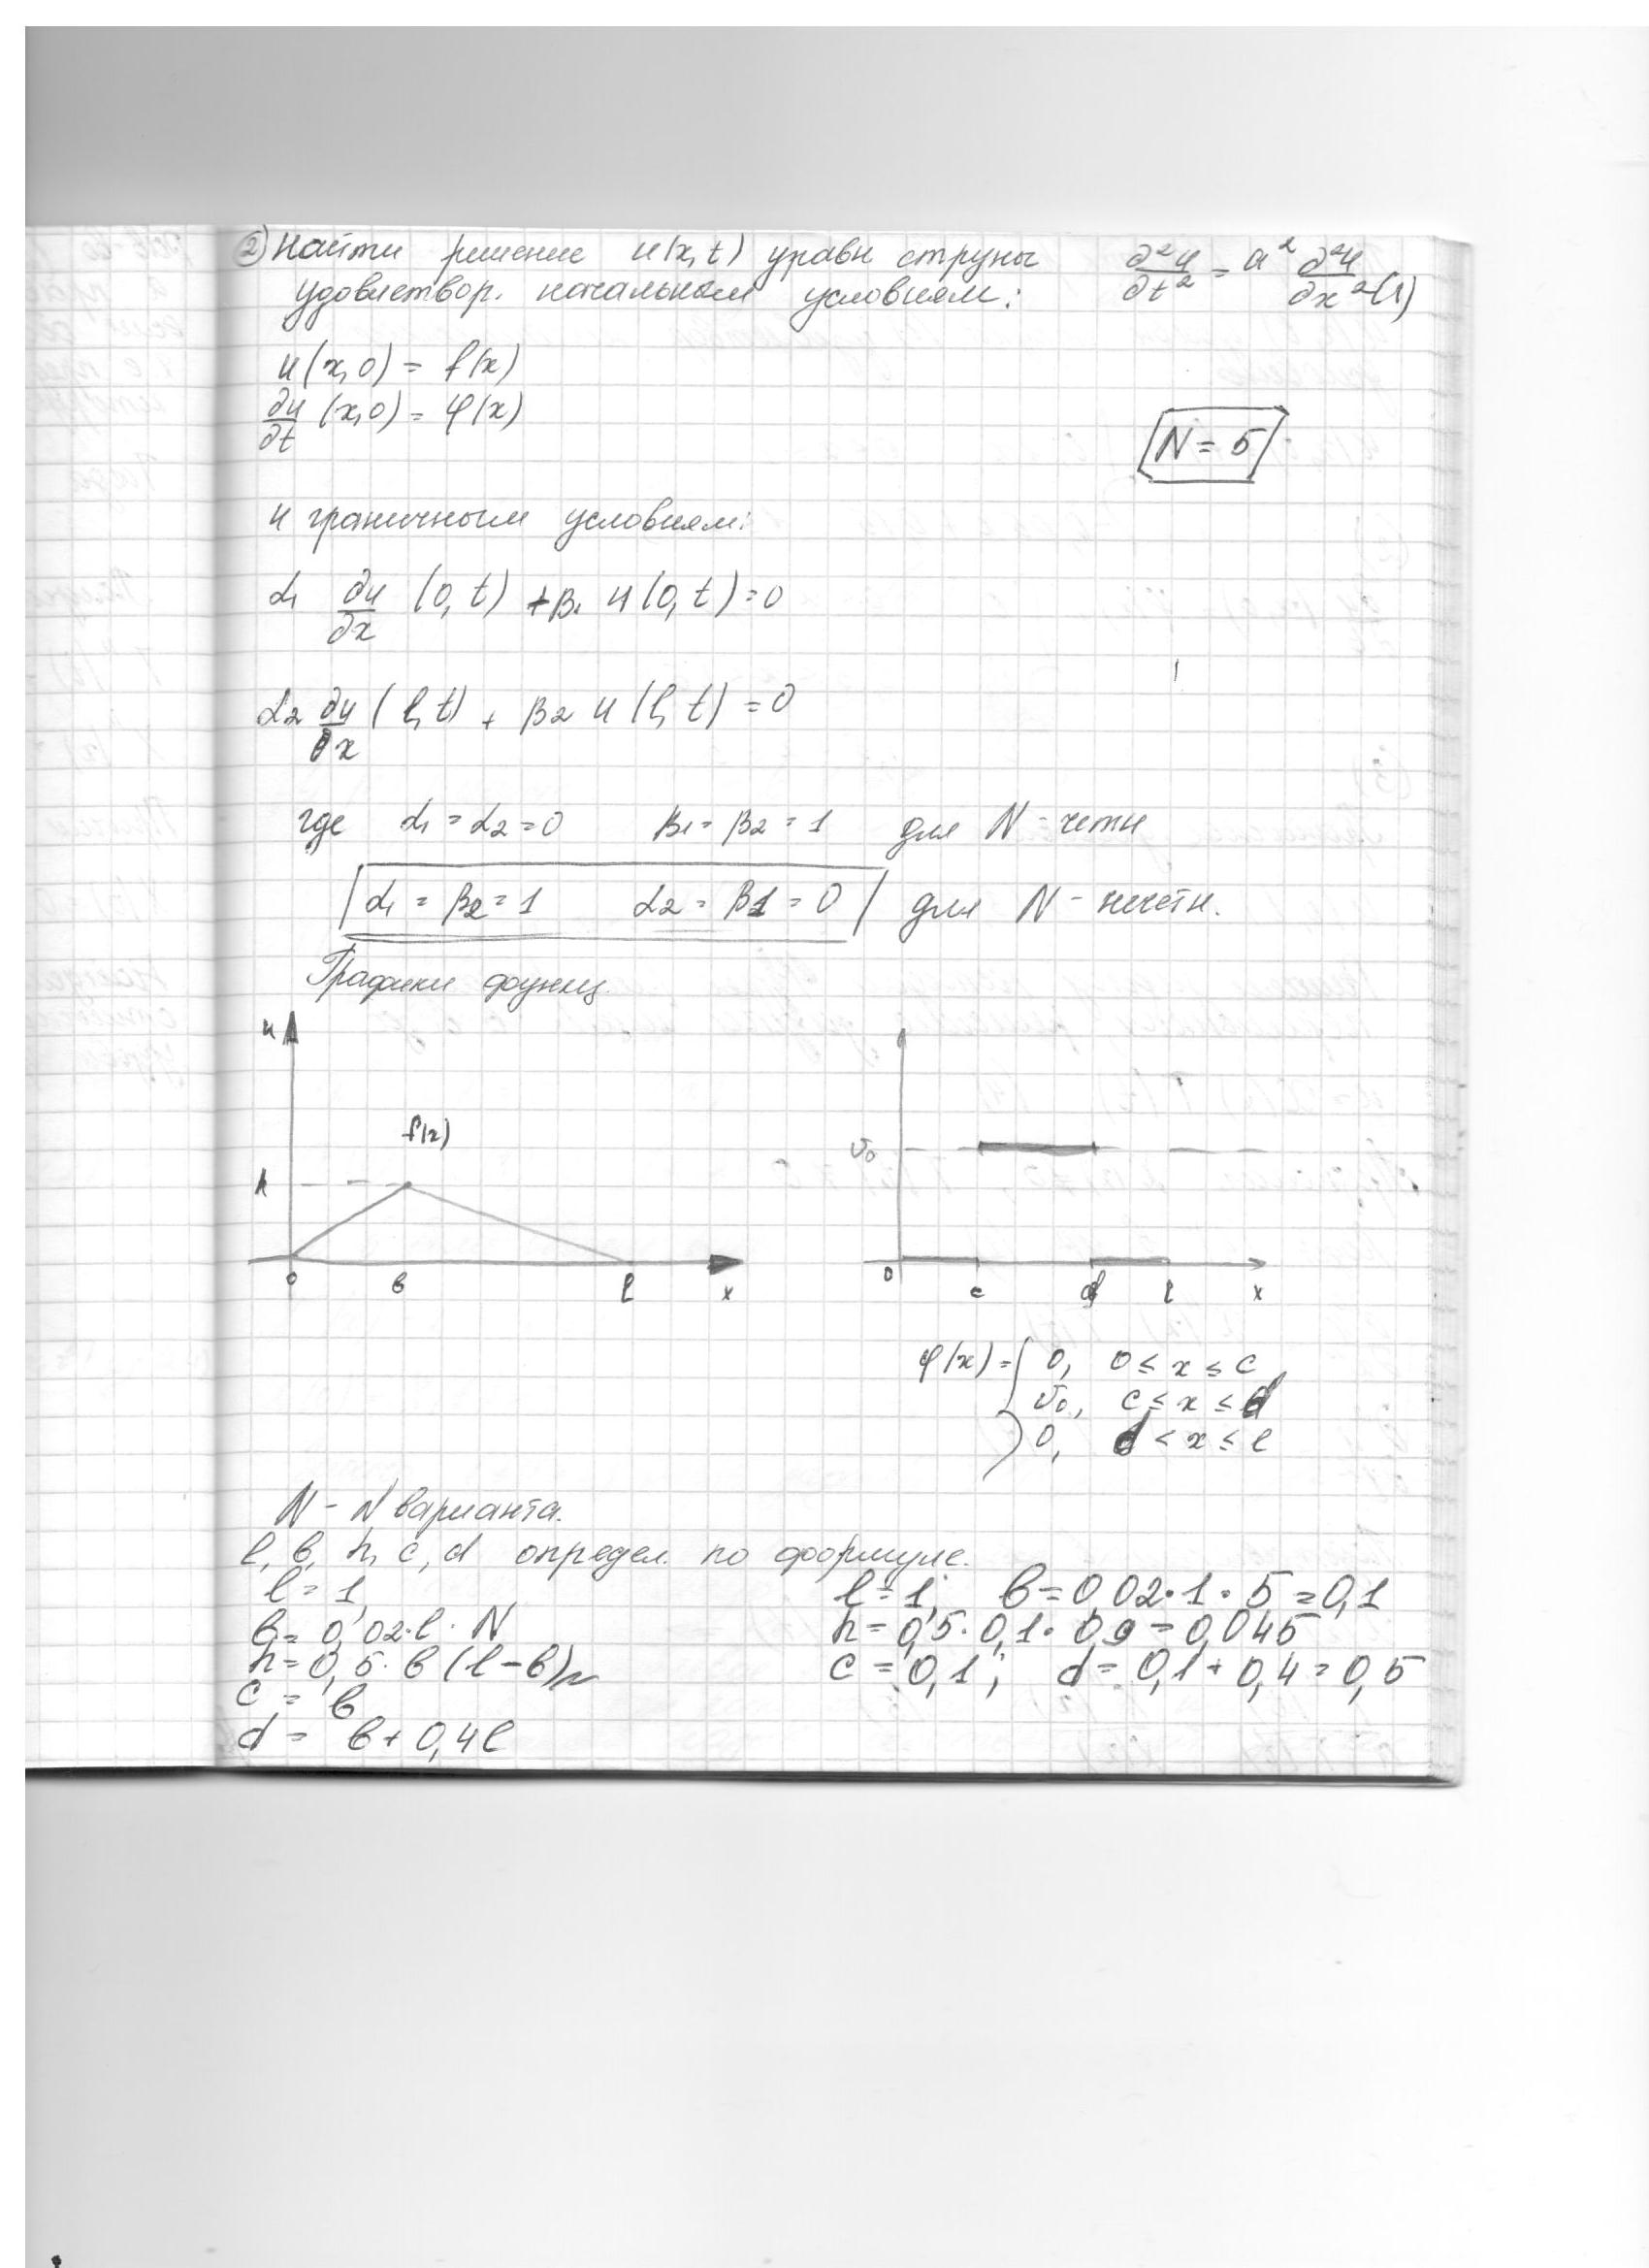 ② Найти решение u(x,t) уравн струны ∂²u/∂t² = a² ∂²u/∂x² (1)
удовлетвор. начальным условиям:
u(x,0) = f(x)
∂u/∂t (x,0) = φ(x)
N = 5
и граничным условиям:
α₁ ∂u/∂x (0,t) + β₁ u(0,t) = 0
α₂ ∂u/∂x (l,t) + β₂ u(l,t) = 0
где α₁ = α₂ = 0 β₁ = β₂ = 1 для N - четн
α₁ = β₂ = 1 α₂ = β1 = 0 для N - нечетн.
Графики функц.
u
f(x)
h
0 в l x
v₀
0 c d l x
φ(x) = { 0, 0 ≤ x ≤ c
v₀, c ≤ x ≤ d
0, d < x ≤ l
N - N варианта.
l, в, h, c, d определ. по формуле.
l = 1,
в = 0,02·l·N
h = 0,5·в(l-в)
c = в
d = в + 0,4l
l = 1; в = 0,02·1·5 = 0,1
h = 0,5·0,1·0,9 = 0,045
c = 0,1; d = 0,1 + 0,4 = 0,5